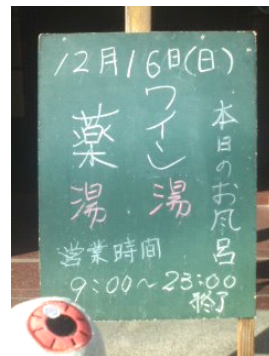 12月16日(日)
本日のお風呂
ワイン湯
薬湯
営業時間
9:00～23:00
終了